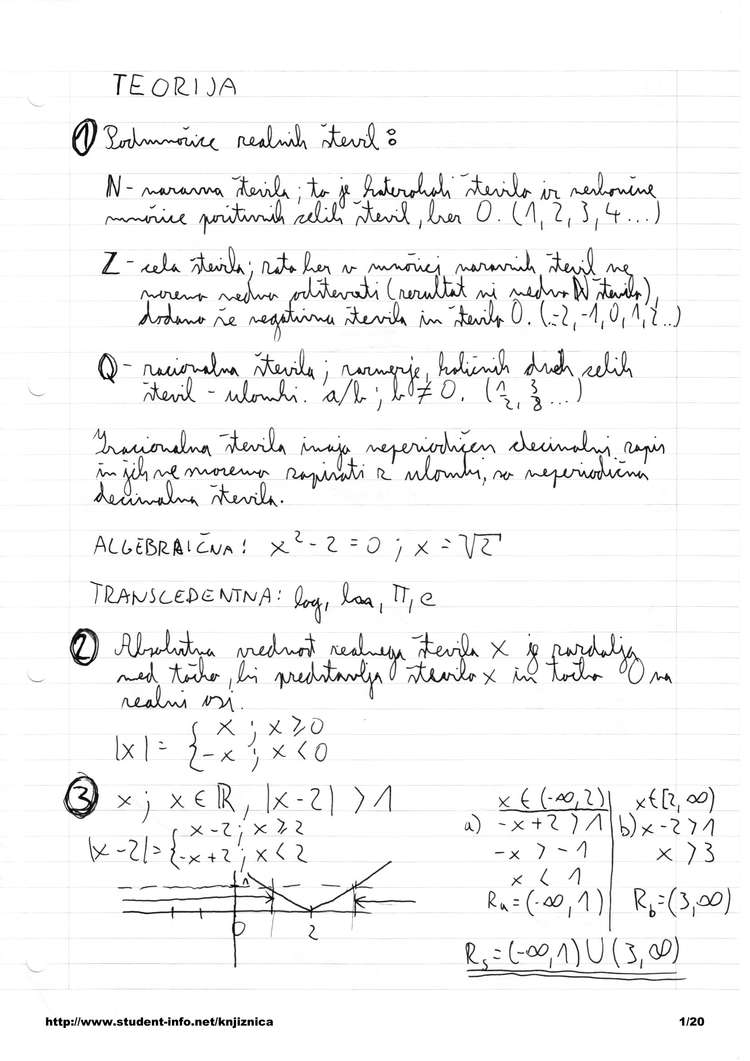 TEORIJA
① Podmnožice realnih števil:
N - naravna števila; to je katerokoli število iz neskončne
množice pozitivnih celih števil, brez 0. (1, 2, 3, 4 ...)
Z - cela števila; zato ker v množici naravnih števil ne
moremo vedno odštevati (rezultat ni vedno N število),
dodamo še negativna števila in število 0. (-2, -1, 0, 1, 2...)
Q - racionalna števila; razmerje, količnik dveh celih
števil - ulomki. a/b ; b ≠ 0. (1/2, 3/8 ...)
Iracionalna števila imajo neperiodičen decimalni zapis
in jih ne moremo zapisati z ulomki, so neperiodična
decimalna števila.
ALGEBRAIČNA: x² - 2 = 0 ; x = √2
TRANSCEDENTNA: log, cos, π, e
② Absolutna vrednost realnega števila x je razdalja
med točko, ki predstavlja število x in točko 0 na
realni osi.
|x| = { x ; x ≥ 0
-x ; x < 0
③ x ; x ∈ ℝ, |x-2| > 1
|x-2| = { x-2 ; x ≥ 2
-x+2 ; x < 2
1
0 2
x ∈ (-∞, 2) | x ∈ [2, ∞)
a) -x+2 > 1 | b) x-2 > 1
-x > -1 | x > 3
x < 1
Ra = (-∞, 1) | Rb = (3, ∞)
Rs = (-∞, 1) ∪ (3, ∞)
http://www.student-info.net/knjiznica 1/20